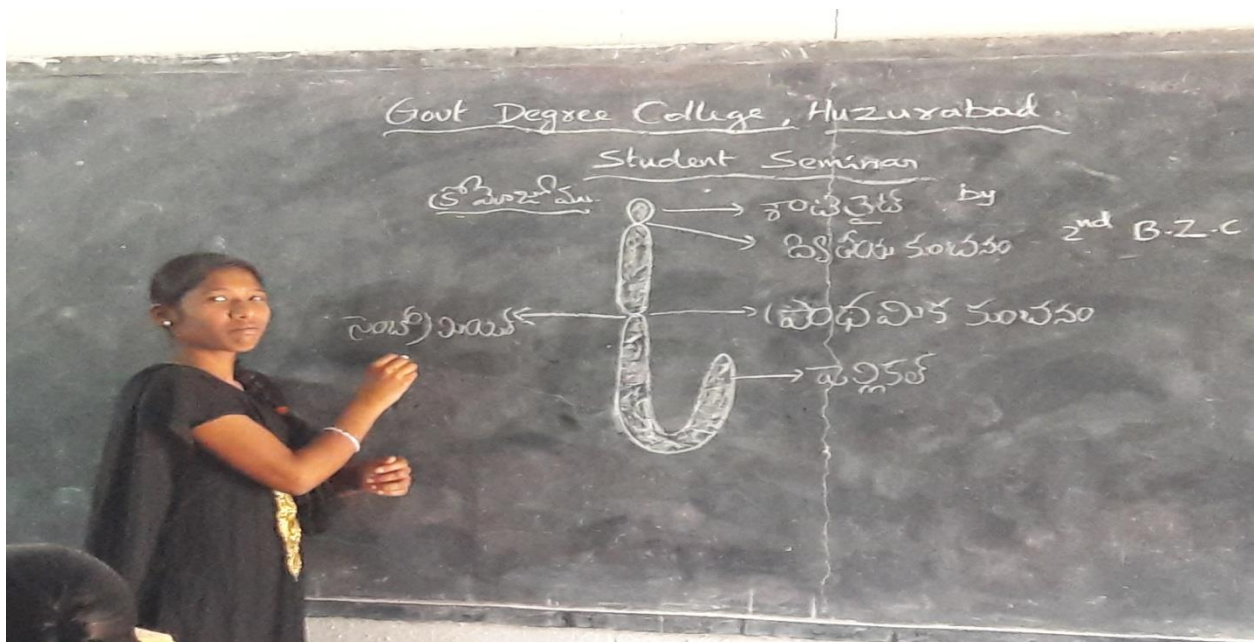 Govt Degree College, Huzurabad.
Student Seminar
క్రోమోజోము. by
శాటిలైట్
ద్వితీయ కుంచనం 2nd B.Z.C
సెంట్రోమియర్ ప్రాథమిక కుంచనం
పెల్లికల్